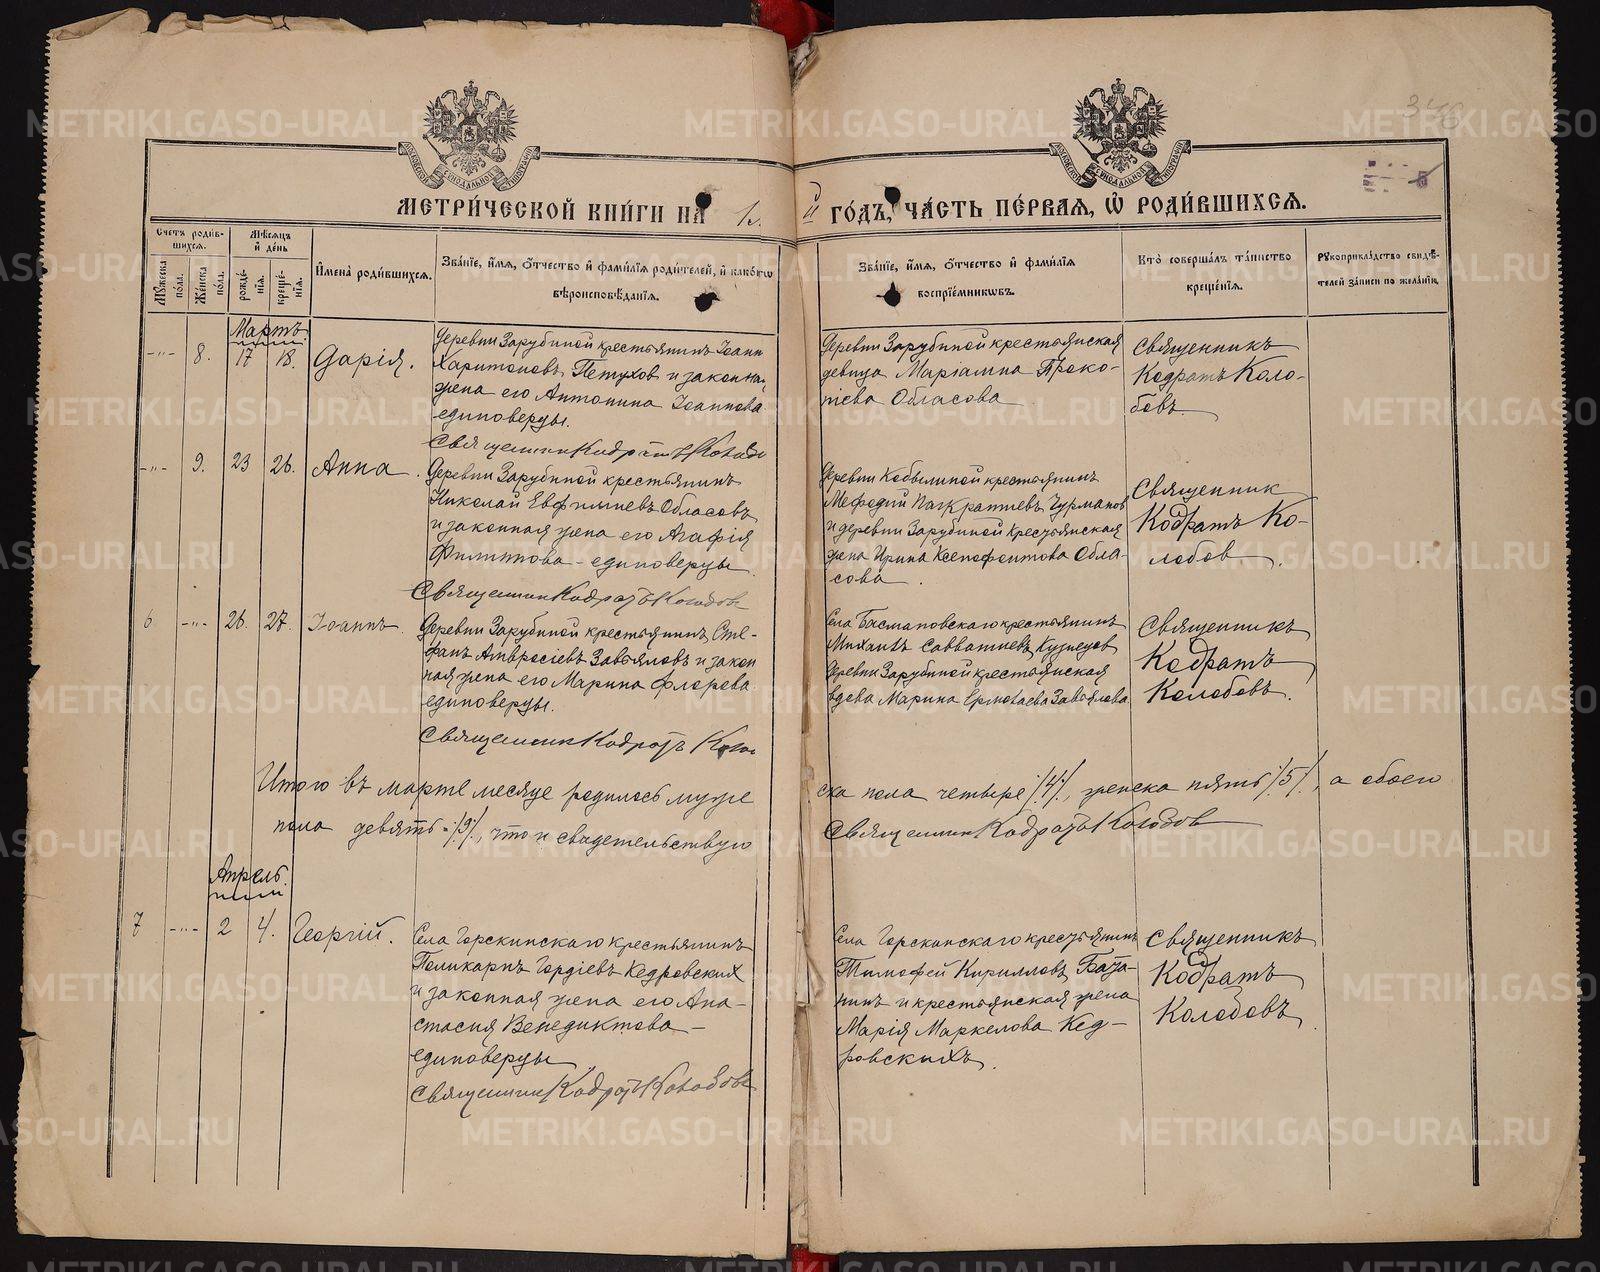 МЕТРИЧЕСКОЙ КНИГИ НА
й ГОДЪ, ЧАСТЬ ПЕРВАЯ, Ѡ РОДИВШИХСЯ.
Счетъ родившихся.
Мужеска пола.
Женска пола.
Мѣсяцъ и день
рожденія.
крещенія.
Имена родившихся.
Званіе, имя, отчество и фамилія родителей, и какогѡ
вѣроисповѣданія.
Званіе, имя, отчество и фамилія
воспріемникѡвъ.
Кто совершалъ таинство
крещенія.
Рукоприкладство свидѣ-
телей записи по желанію.
Мартъ
-"- 8. 17 18. Дарія.
Деревни Зарубиной крестьянинъ Іоанн
Харитоновъ Петухов и законная
жена его Антонина Іоаннова
единоверцы.
Священник Кодратъ Колобо
Деревни Зарубиной крестьянская
девица Маріамна Проко-
піева Обласова
Священникъ
Кодратъ Коло-
бовъ.
-"- 9. 23 26. Анна.
Деревни Зарубиной крестьянинъ
Николай Евфимиевъ Обласовъ
и законная жена его Агафія
Филиппова - единоверцы.
Священник Кодратъ Колобовъ
Деревни Кобылиной крестьянинъ
Мефодий Панкратиевъ Чурманов
и деревни Зарубиной крестьянская
жена Ирина Ксенофонтова Обла-
сова.
Священник
Кодратъ Ко-
лобов.
6 -"- 26. 27. Іоаннъ.
Деревни Зарубиной крестьянинъ Сте-
фанъ Амвросіевъ Завьяловъ и закон
ная жена его Марина Флорева
единоверцы.
Священник Кодратъ Коло
Села Басмановскаго крестьянинъ
Михаилъ Савватиевъ Кузнецов
деревни Зарубиной крестьянская
вдова Марина Ермолаева Завьялова
Священникъ
Кодратъ
Колобовъ.
Итого въ марте месяце родилось муже
ска пола четыре /4/, женска пять /5/, а обоего
пола девять /9/, что и свидетельствую
Священник Кодратъ Колобов
Апрель
7 -"- 2 4. Георгій.
Села Горскинскаго крестьянинъ
Поликарпъ Гордіевъ Кедровских
и законная жена его Ана-
стасия Венедиктова -
единоверцы
Священник Кодратъ Колобовъ
Села Горскинскаго крестьянинъ
Тимофей Кирилловъ База-
нинъ и крестьянская жена
Марія Маркелова Кед-
ровскихъ.
Священникъ
Кодратъ
Колобовъ
METRIKI.GASO-URAL.RU